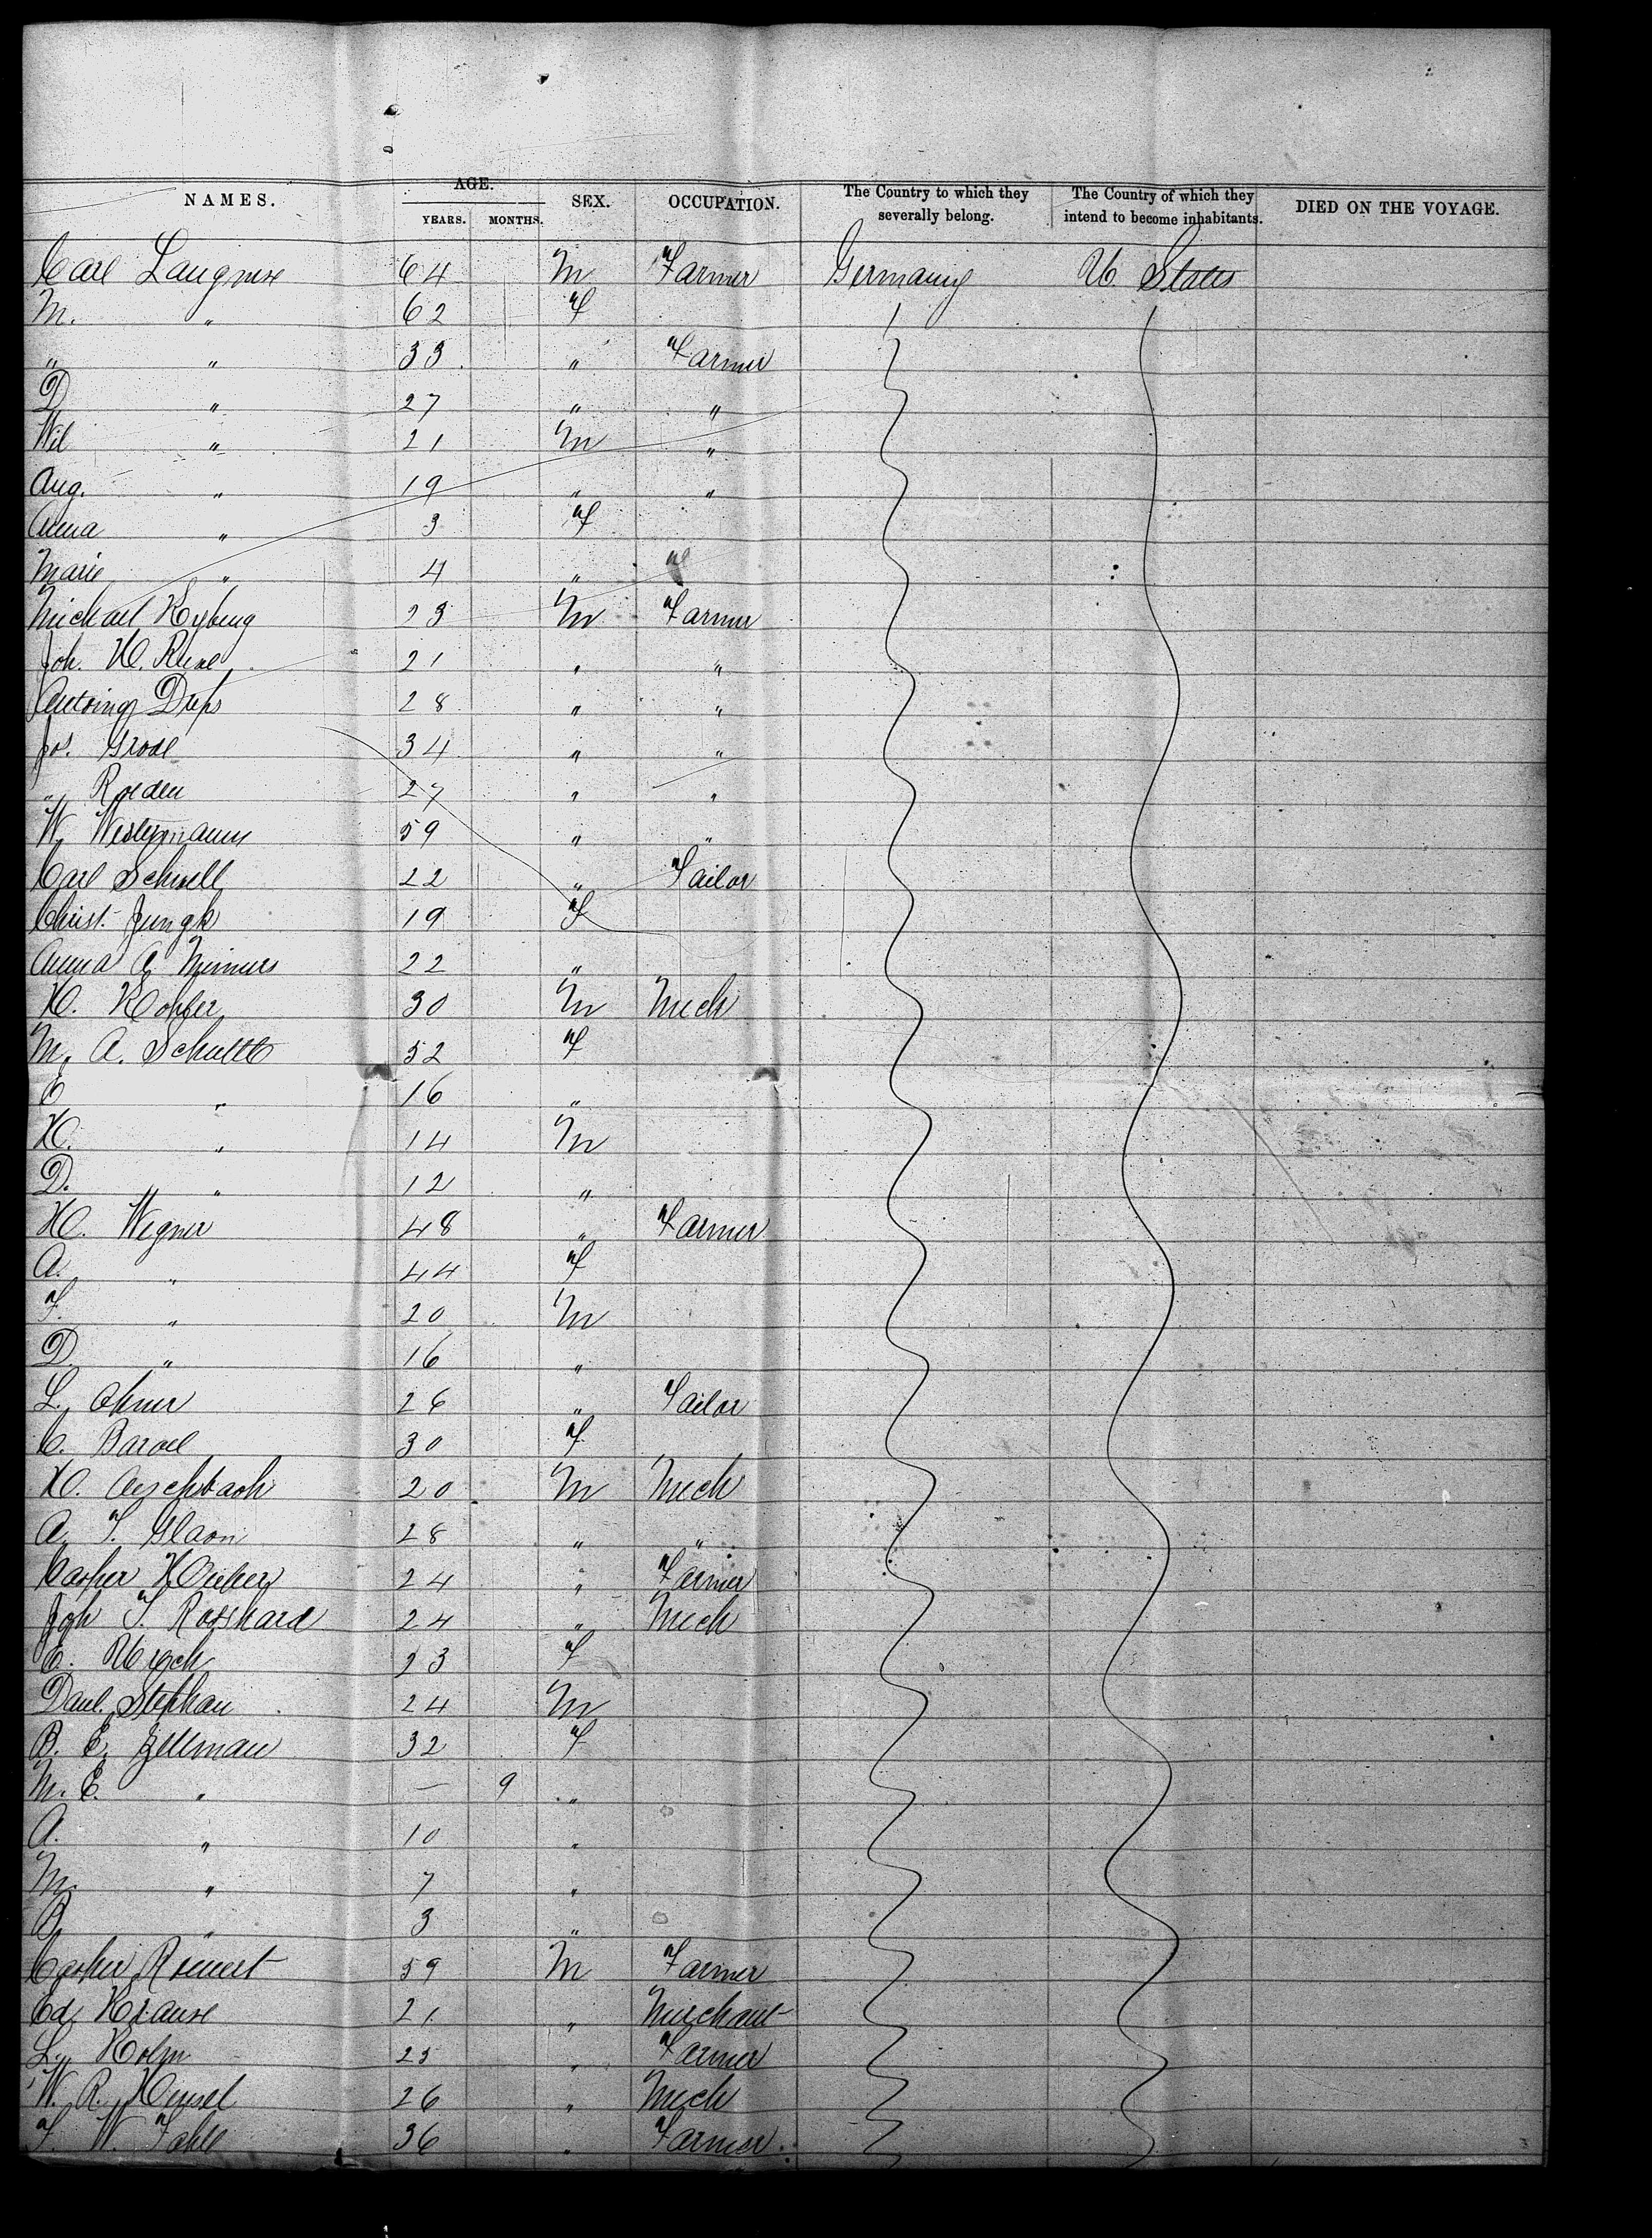 NAMES. AGE. YEARS. MONTHS. SEX. OCCUPATION. The Country to which they severally belong. The Country of which they intend to become inhabitants. DIED ON THE VOYAGE.
Carl Langrese 64 M Farmer Germany U. States
M. " 62 F
" " 33 " Farmer
D " 27 " "
Wil " 21 M "
Aug. " 19 " "
Anna " 3 F
Marie " 4 " F
Michael Kyburg 23 M Farmer
Joh. H. 21 " "
28 " "
Jos. Grose 34 " "
" Roeden 27 " "
W. Westermann 59 " "
Carl Schnell 22 " Tailor
Christ. Jungk 19 F
Anna A. Meiners 22 "
H. Kohler 30 M Mech
M. A. Schultt 52 F
E " 16 "
H. " 14 M
D. " 12 "
H. Wegner 48 " Farmer
A. " 44 F
F. " 20 M
D " 16 "
L. Ohner 26 " Tailor
C. 30 F
H. Aeschbach 20 M Mech
A. T. 28 " "
Casper Hieber 24 " Farmer
Joh T. Rosshard 24 " Mech
E. 23 F
Danl. Stephan 24 M
B. E. Zellman 32 F
M. E. " — 9 "
A. " 10 "
M. " 7 "
B " 3 "
Casper Reinert 59 M Farmer
Ed. Krause 21 " Merchant
L. Kolm 25 " Farmer
W. R. Hensel 26 " Mech
F. W. Fahle 36 " Farmer